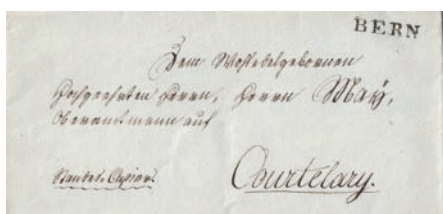 BERN
Dem Wohledelgebornen
Hochgeehrten Herrn, Herrn May,
Oberamtmann auf
Courtelary.